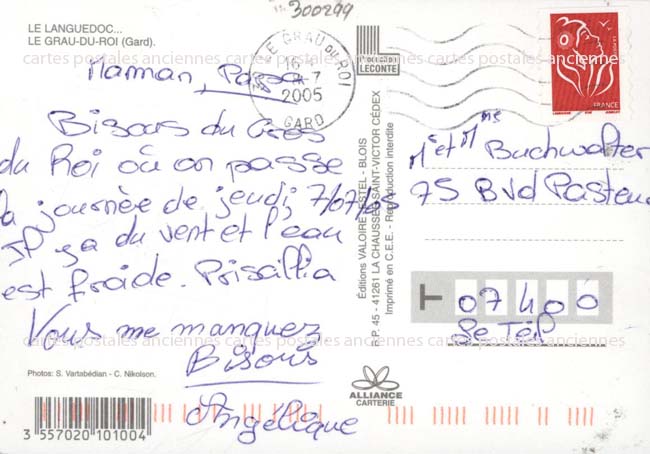 300299
LE LANGUEDOC...
LE GRAU-DU-ROI (Gard).
cartes postales anciennes cartes postales anciennes cartes postales anciennes
LE GRAU DU ROI
16 H
7-7
2005
GARD
Production
LECONTE
FRANCE
Maman, Papa
Bisous du Gros
du Roi où on passe
la journée de jeudi, 7/07/05
Il y a du vent et l'eau
est froide. Prisallia
Vous me manquez
Bisous
Angélique
Photos: S. Vartabédian - C. Nikolson.
3 557020 101004
Éditions VALOIRE-ESTEL - BLOIS
R.P. 45 - 41261 LA CHAUSSÉE-SAINT-VICTOR CÉDEX
Imprimé en C.E.E. - Reproduction interdite
ALLIANCE
CARTERIE
Mr et Mme Buchwalter
75 BVd Pasteur
07400
Le Teil